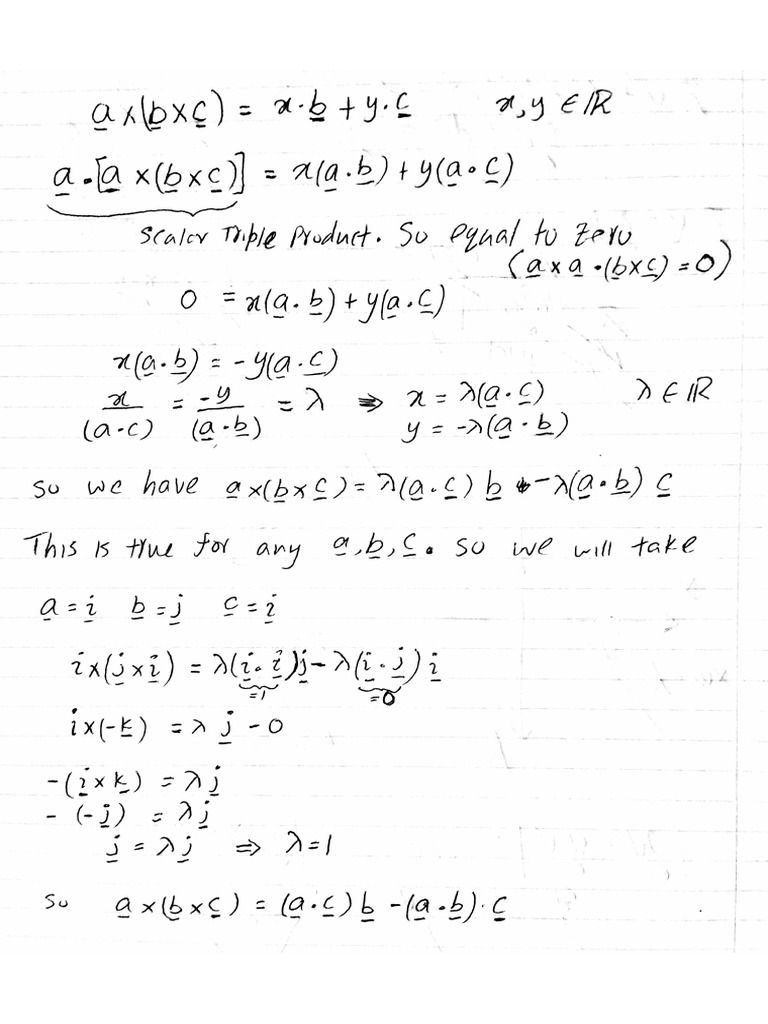 a×(b×c) = x·b + y·c    x,y ∈ ℝ
a·[a×(b×c)] = x(a·b) + y(a·c)
Scaler Triple Product. So equal to zero
(a×a·(b×c)=0)
0 = x(a·b) + y(a·c)
x(a·b) = -y(a·c)
x/(a·c) = -y/(a·b) = λ ⇒ x = λ(a·c)    λ ∈ ℝ
y = -λ(a·b)
so we have a×(b×c) = λ(a·c) b - λ(a·b) c
This is true for any a,b,c. so we will take
a=i  b=j  c=i
i×(j×i) = λ(i·i)j - λ(i·j)i
=1  =0
i×(-k) = λ j - 0
-(i×k) = λj
-(-j) = λj
j = λj ⇒ λ=1
So a×(b×c) = (a·c)b - (a·b)·c